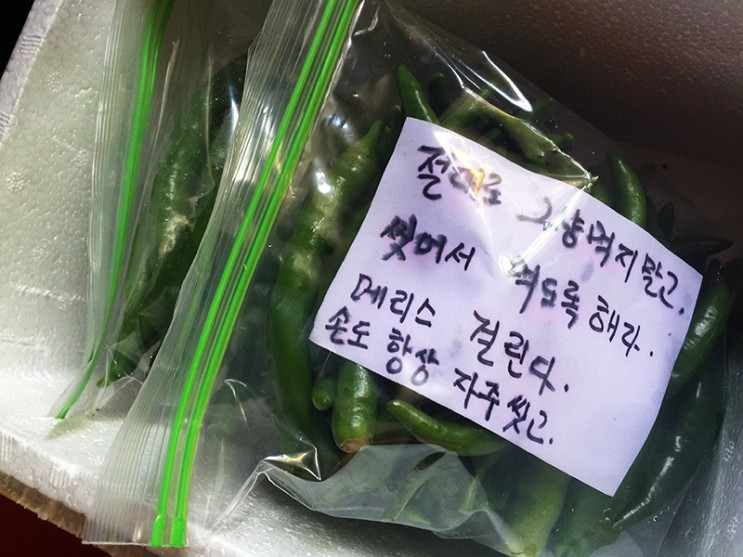 절대로 그냥먹지말고.
씻어서 먹도록 해라.
메리스 걸린다.
손도 항상 자주 씻고.